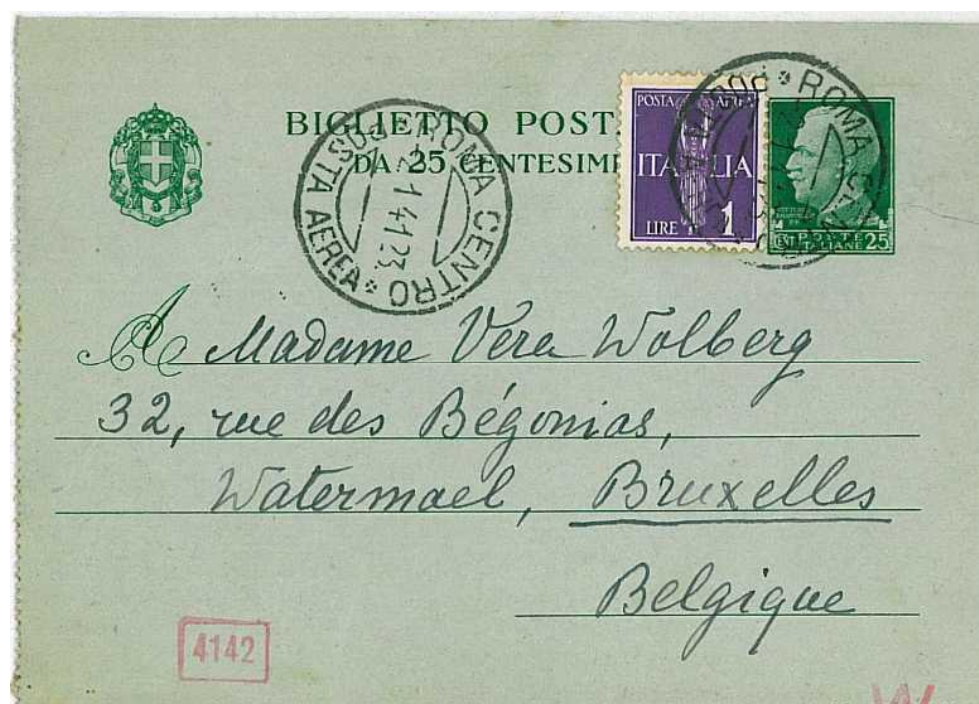 BIGLIETTO POST
DA 25 CENTESIMI
ROMA CENTRO
POSTA AEREA
1.41.23
POSTA AEREA
ITALIA
LIRE 1
ROMA
POSTE
ITALIANE 25
A Madame Vera Wolberg
32, rue des Bégonias,
Watermael, Bruxelles
Belgique
4142